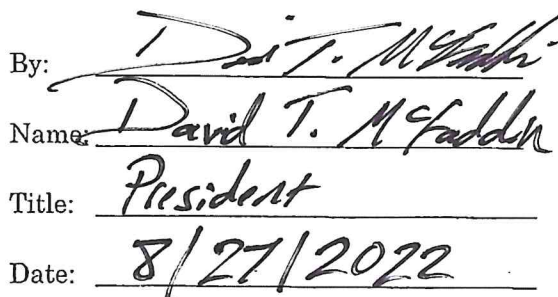 By: David T. McFaddin
Name: David T. McFaddin
Title: President
Date: 8/27/2022